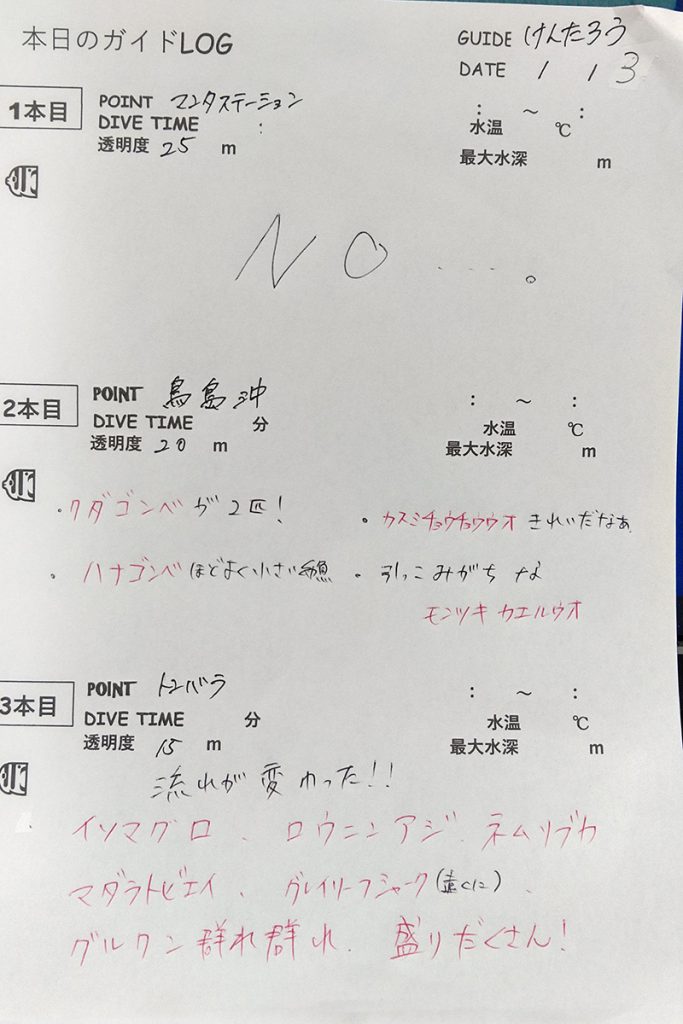 本日のガイドLOG
GUIDE けんたろう
DATE 1 / 13
1本目
POINT マンタステーション
DIVE TIME :
透明度 25 m
: ～ :
水温 ℃
最大水深 m
NO ....。
2本目
POINT 鳥島沖
DIVE TIME 分
透明度 20 m
: ～ :
水温 ℃
最大水深 m
・クダゴンベが2匹!
・カスミチョウチョウウオ きれいだなぁ
・ハナゴンベ ほどよく小さい幼魚
・引っこみがちな
モンツキカエルウオ
3本目
POINT トンバラ
DIVE TIME 分
透明度 15 m
: ～ :
水温 ℃
最大水深 m
流れが変わった!!
イソマグロ、ロウニンアジ、ネムリブカ
マダラトビエイ、グレイリーフシャーク(遠くに)、
グルクン群れ群れ、盛りだくさん!